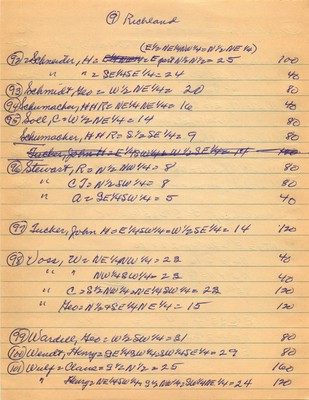 ⑨ Richland
(E½NE¼NW¼=N½NE¼)
(92) Schneider, H= N½N½=25 100
" " = SE¼SE¼=24 40
(93) Schmidt, Geo = W½NE¼ 20 80
(94) Schumacher, HHR= NE¼NE¼=16 40
(95) Soll, C=W½NE¼=14 80
Schumacher, HHR= S½SE¼=9 80
Tucker, John H=E½SW¼=W½SE¼=14
(96) Stewart, R=N½NE¼=8 80
" CJ=N½SW¼=8 80
" a=SE¼SE¼=5 40
(97) Tucker, John H=E¼SW¼=W½SE¼=14 120
(98) Voss, W=NE¼NW¼=23 40
" " NW¼SW¼=23 40
" C=S½NW¼=NE¼SW¼=23 120
" Geo=N½=SE¼NE¼=15 120
(99) Wardell, Geo=W½SW¼=31 80
(100) Wendt, Henry=SE¼SW¼=SW¼SE¼=29 80
(101) Wulf=Claus=S½N½=25 160
" Henry=NE¼SW¼, S½NW¼, SW¼NE¼=24 120